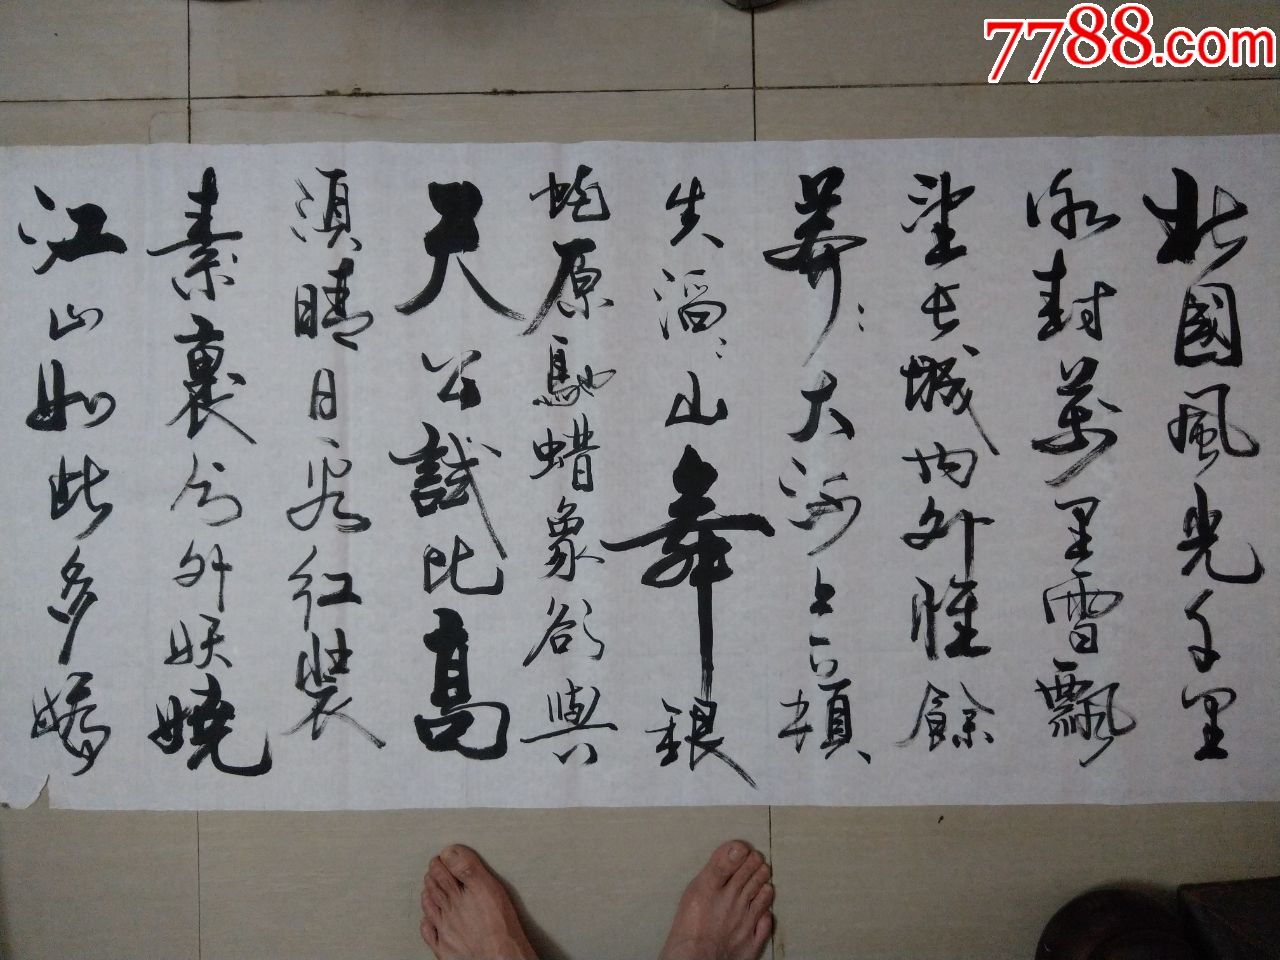 北國風光千里
冰封萬里雪飄
望長城内外惟餘
莽：大河上下頓
失滔：山舞銀
蛇原馳蜡象欲與
天公試比高
須晴日看紅裝
素裹分外妖嬈
江山如此多嬌
7788.com